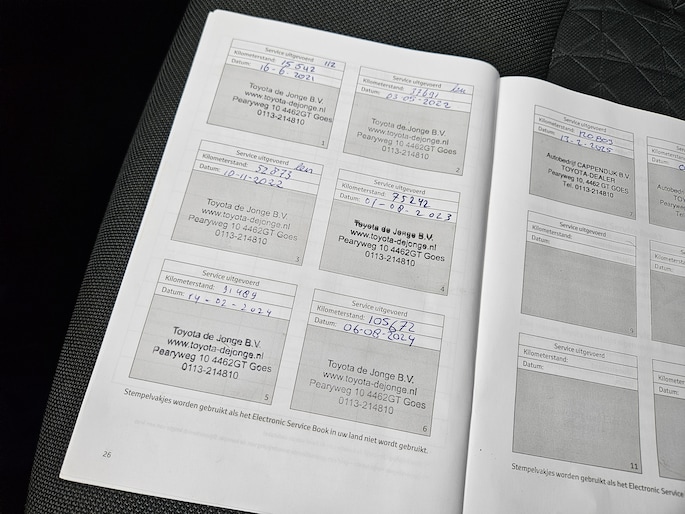 Service uitgevoerd 1/2
Kilometerstand: 15542
Datum: 16-6-2021
Toyota de Jonge B.V.
www.toyota-dejonge.nl
Pearyweg 10 4462GT Goes
0113-214810
1
Service uitgevoerd
Kilometerstand: 37691
Datum: 03-05-2022
Toyota de Jonge B.V.
www.toyota-dejonge.nl
Pearyweg 10 4462GT Goes
0113-214810
2
Service uitgevoerd
Kilometerstand: 52873
Datum: 10-11-2022
Toyota de Jonge B.V.
www.toyota-dejonge.nl
Pearyweg 10 4462GT Goes
0113-214810
3
Service uitgevoerd
Kilometerstand: 75242
Datum: 01-08-2023
Toyota de Jonge B.V.
www.toyota-dejonge.nl
Pearyweg 10 4462GT Goes
0113-214810
4
Service uitgevoerd
Kilometerstand: 91489
Datum: 14-02-2024
Toyota de Jonge B.V.
www.toyota-dejonge.nl
Pearyweg 10 4462GT Goes
0113-214810
5
Service uitgevoerd
Kilometerstand: 105672
Datum: 06-08-2024
Toyota de Jonge B.V.
www.toyota-dejonge.nl
Pearyweg 10 4462GT Goes
0113-214810
6
Stempelvakjes worden gebruikt als het Electronic Service Book in uw land niet wordt gebruikt.
26
Service uitgevoerd
Kilometerstand:
Datum: 13-2-2025
Autobedrijf CAPPENDIJK B.V.
TOYOTA-DEALER
Pearyweg 10, 4462 GT GOES
Tel. 0113-214810
7
Service uitgevoerd
Kilometerstand:
Datum:
9
Service uitgevoerd
Kilometerstand:
Datum:
11
Stempelvakjes worden gebruikt als het Electronic Service